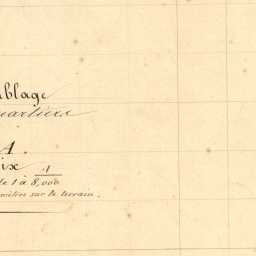 blage
uartiers
A.
ix
1
de 1 à 8,000
mètres sur le terrain.